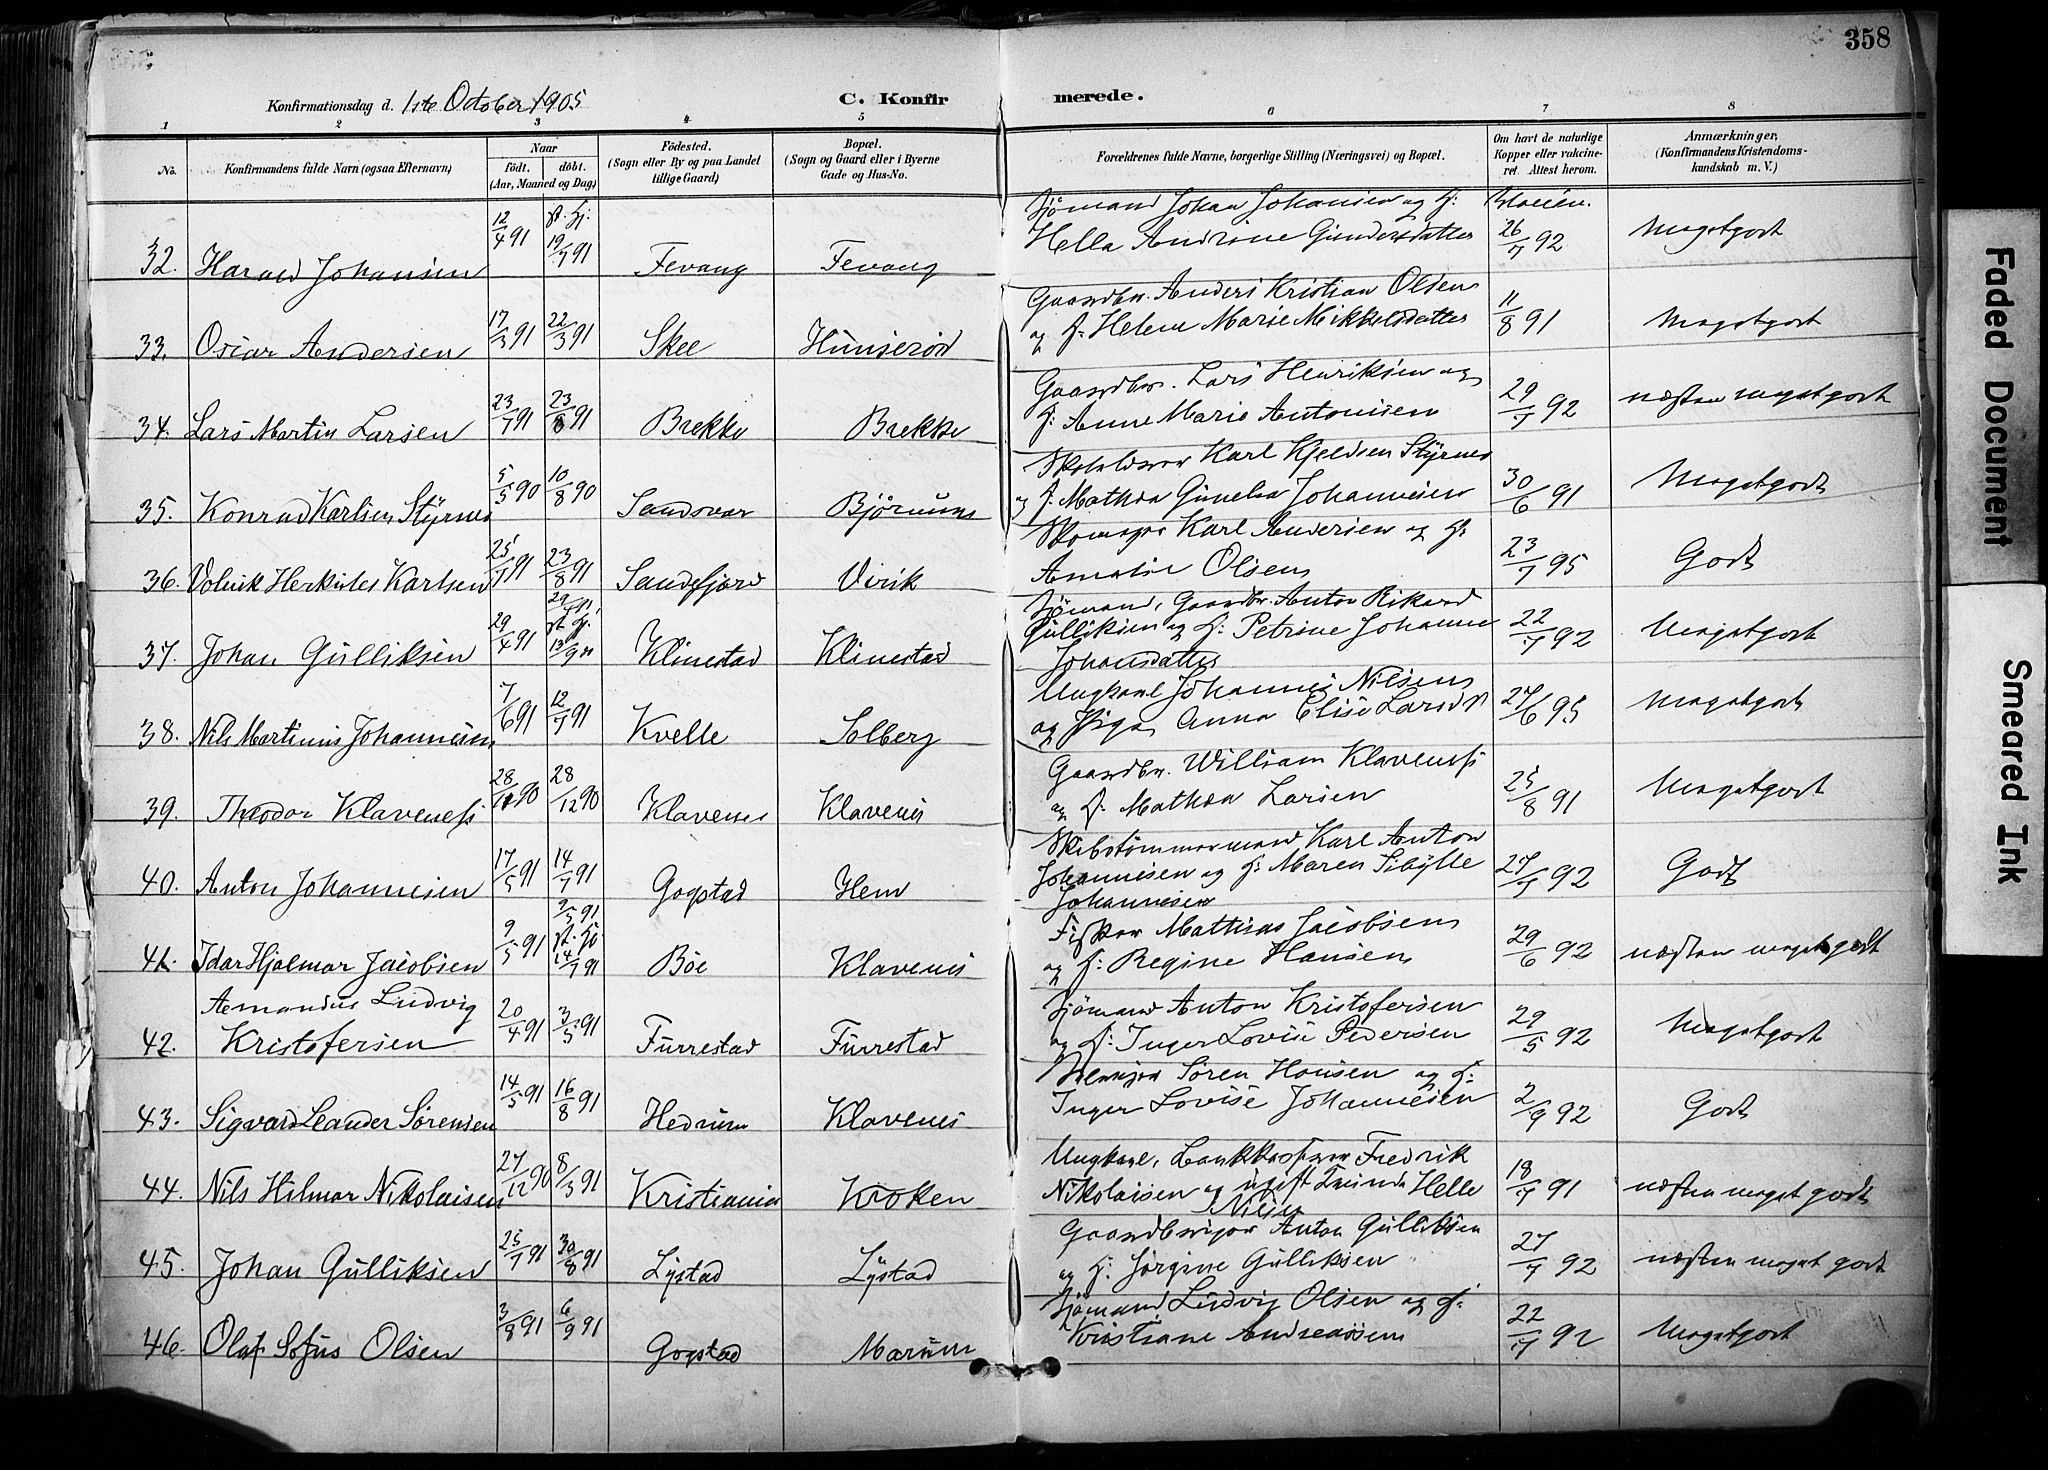 358
Konfirmationsdag d. 1ste October 1905
C. Konfir merede.
1 2 3 4 5 6 7 8
No.
Konfirmandens fulde Navn (ogsaa Efternavn)
Naar
födt. döbt.
(Aar, Maaned og Dag)
Födested.
(Sogn eller By og paa Landet
tillige Gaard)
Bopæl.
(Sogn og Gaard eller i Byerne
Gade og Hus-No.
Forældrenes fulde Navne, borgerlige Stilling (Næringsvei) og Bopæl.
Om havt de naturlige
Kopper eller vakcine-
ret. Attest herom.
Anmærkninger,
(Konfirmandens Kristendoms-
kundskab m. V.)
Sjömand Johan Johansen og H:
32. Harald Johansen 12/4 91 19/7 91 Fevang Fevang Hella Andrine Gundersdatter 26/7 92 Megetgodt
Gaardbr. Anders Kristian Olsen
33. Oscar Andersen 17/3 91 22/3 91 Skee Hunserød og H: Helene Marie Mikkelsdatter 11/8 91 Megetgodt
Gaardbr. Lars Henriksen og
34. Lars Martin Larsen 23/7 91 23/8 91 Brekke Brekke H: Anne Marie Antonisen 29/7 92 næsten megetgodt
Karl Kjeldsen Styrnes
35. Konrad Karlsen Styrnes 5/5 90 10/8 90 Sandsvær Bjørnum og H: Mathea Gunelia Johannesen 30/6 91 Megetgodt
Skomager Karl Andersen og H:
36. Volrik Herkules Karlsen 25/7 91 23/8 91 Sandefjord Virik Amalie Olsen 23/7 95 Godt
Sjömand, Gaardbr. Anton Rikard
37. Johan Gulliksen 29/4 91 13/9 91 Klinestad Klinestad Gulliksen og H: Petrine Johanne 22/7 92 Megetgodt
Johansdatter
Ungkarl Johannes Nilsen
38. Nils Martinus Johannesen 7/6 91 12/7 91 Kvelle Solberg og Pige Anna Elise Larsd. 27/6 95 Megetgodt
Gaardbr. William Klaveness
39. Theodor Klaveness 28/11 90 28/12 90 Klavenes Klavenes og H: Mathea Larsen 25/8 91 Megetgodt
Skibstömmermand Karl Anton
40. Anton Johannesen 17/5 91 14/7 91 Gogstad Hem Johannesen og H: Maren Sibylle 27/7 92 Godt
Johannesen
Fisker Mathias Jacobsen
41. Idar Hjalmar Jacobsen 9/5 91 14/7 91 Böe Klavenes og H: Regine Hansen 29/6 92 næsten megetgodt
Amandus Ludvig Sjömand Anton Kristofersen
42. Kristofersen 20/4 91 3/5 91 Furrestad Furrestad og H: Inger Lovise Pedersen 29/5 92 Megetgodt
Sören Hansen og H:
43. Sigvard Leander Sørensen 14/5 91 16/8 91 Hedrum Klavenes Inger Lovise Johannesen 2/9 92 Godt
Ungkarl, Bankkasserer Fredrik
44. Nils Hilmar Nikolaisen 27/12 90 8/3 91 Kristiania Kroken Nikolaisen og ugift Helle 18/7 91 næsten meget godt
Nilsen
Gaardbruger Anton Gulliksen
45. Johan Gulliksen 25/7 91 30/8 91 Lystad Lystad og H: Jörgine Gulliksen 27/7 92 næsten meget godt
Sjömand Ludvig Olsen og H:
46. Olaf Sofus Olsen 3/8 91 6/9 91 Gogstad Marum Kristiane Andreassen 22/7 92 Megetgodt
Faded Document
Smeared Ink